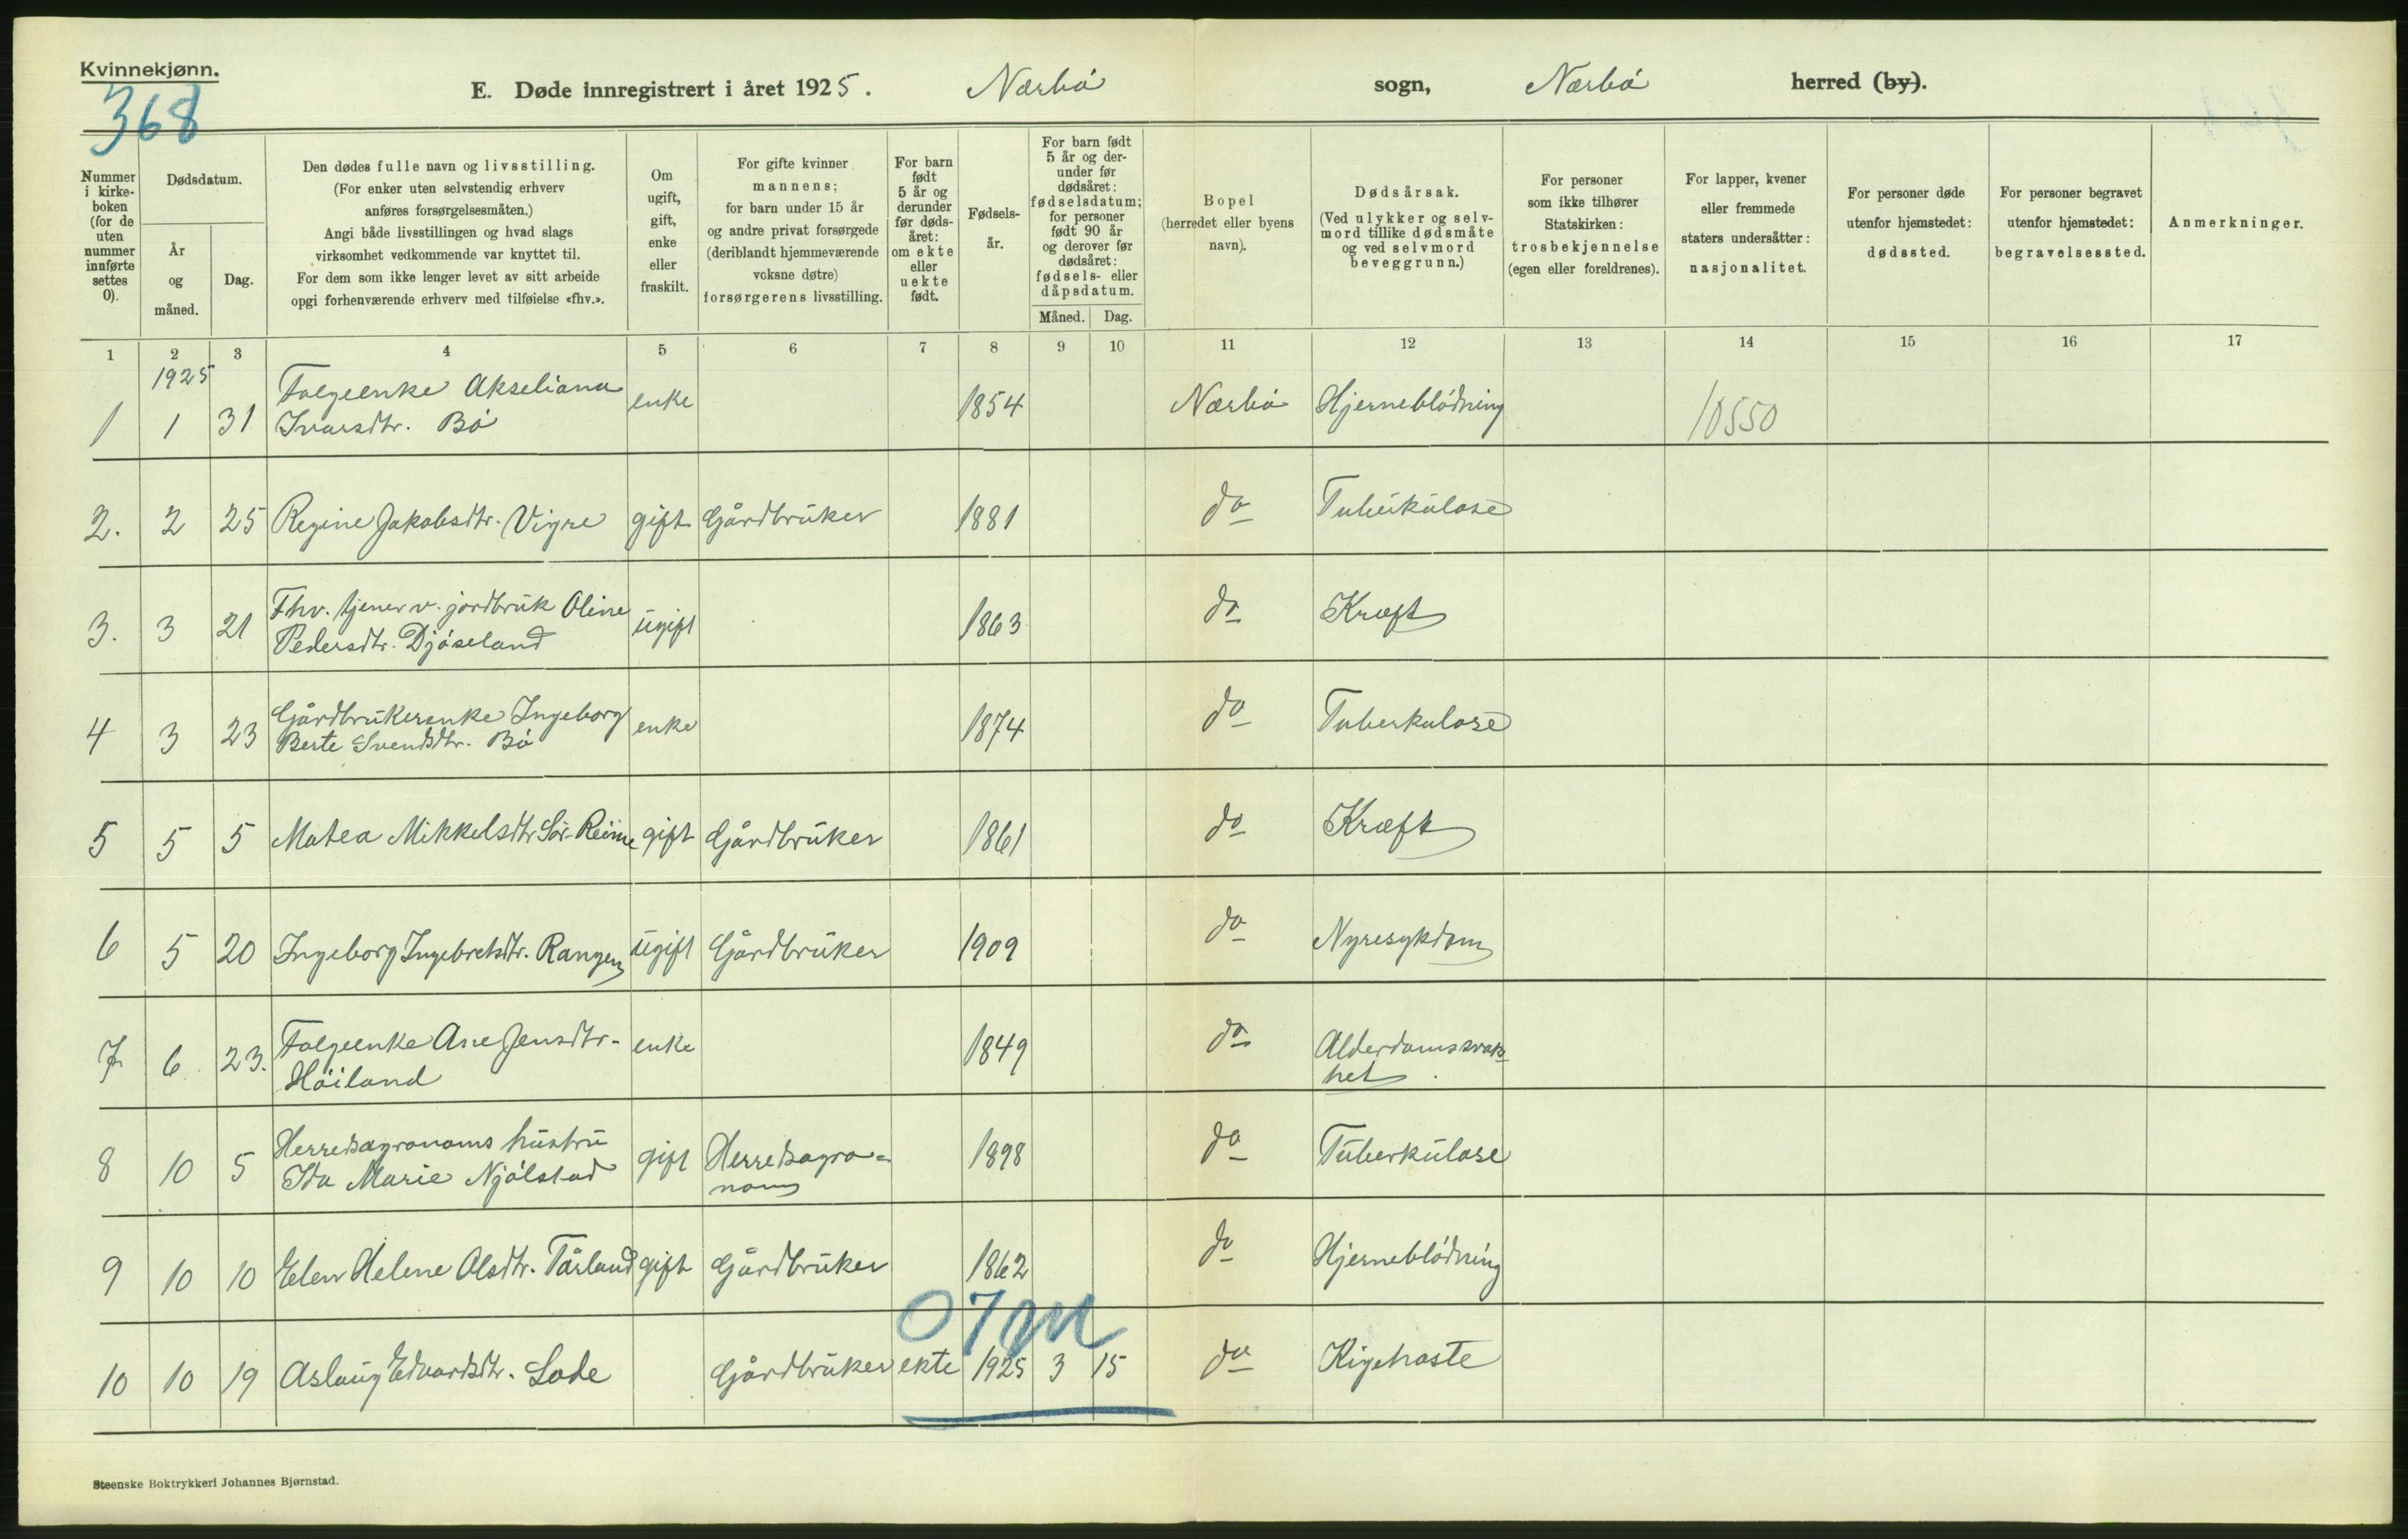 Kvinnekjønn.
368
E. Døde innregistrert i året 1925. Nærbö sogn, Nærbö herred (by).
Nummer i kirke- boken (for de uten nummer innførte settes 0).
Dødsdatum.
År og måned.
Dag.
Den dødes fulle navn og livsstilling.
(For enker uten selvstendig erhverv
anføres forsørgelsesmåten.)
Angi både livsstillingen og hvad slags
virksomhet vedkommende var knyttet til.
For dem som ikke lenger levet av sitt arbeide
opgi forhenværende erhverv med tilføielse «fhv.».
Om ugift, gift, enke eller fraskilt.
For gifte kvinner
mannens;
for barn under 15 år
og andre privat forsørgede
(deriblandt hjemmeværende
voksne døtre)
forsørgerens livsstilling.
For barn født 5 år og derunder før døds- året: om ekte eller uekte født.
Fødsels- år.
For barn født 5 år og der- under før dødsåret: fødselsdatum; for personer født 90 år og derover før dødsåret: fødsels- eller dåpsdatum.
Måned. Dag.
Bopel
(herredet eller byens
navn).
Dødsårsak.
(Ved ulykker og selv-
mord tillike dødsmåte
og ved selvmord
beveggrunn.)
For personer
som ikke tilhører
Statskirken:
trosbekjennelse
(egen eller foreldrenes).
For lapper, kvener
eller fremmede
staters undersåtter:
nasjonalitet.
For personer døde
utenfor hjemstedet:
dødssted.
For personer begravet
utenfor hjemstedet:
begravelsessted.
Anmerkninger.
1 2 3 4 5 6 7 8 9 10 11 12 13 14 15 16 17
1925
1 1 31 Folgeenke Akseliana Ivarsdtr. Bö enke 1854 Nærbö Hjerneblödning 10550
2. 2 25 Regine Jakobsdtr. Vigre gift Gårdbruker 1881 do Tuberkulose
3. 3 21 Fhv. tjener v. jordbruk Oline Pedersdtr. Djöseland ugift 1863 do Kræft
4 3 23 Gårdbrukerenke Ingeborg Berte Svendsdtr. Bö enke 1874 do Tuberkulose
5 5 5 Matea Mikkelsdtr Sör-Reime gift Gårdbruker 1861 do Kræft
6 5 20 Ingeborg Ingebretsdtr. Rangen ugift Gårdbruker 1909 do Nyresykdom
7 6 23. Folgeenke Ane Jensdtr. Höiland enke 1849 do Alderdomssvak- het
8 10 5 Herredsagronoms hustru Ida Marie Njölstad gift Herredsagro- nom 1898 do Tuberkulose
9 10 10 Elen Helene Olsdtr. Tårland gift Gårdbruker 1862 do Hjerneblödning
07m
10 10 19 Aslaug Edvardsdtr. Lode Gårdbruker ekte 1925 3 15 do Kigehoste
Steenske Boktrykkeri Johannes Bjørnstad.